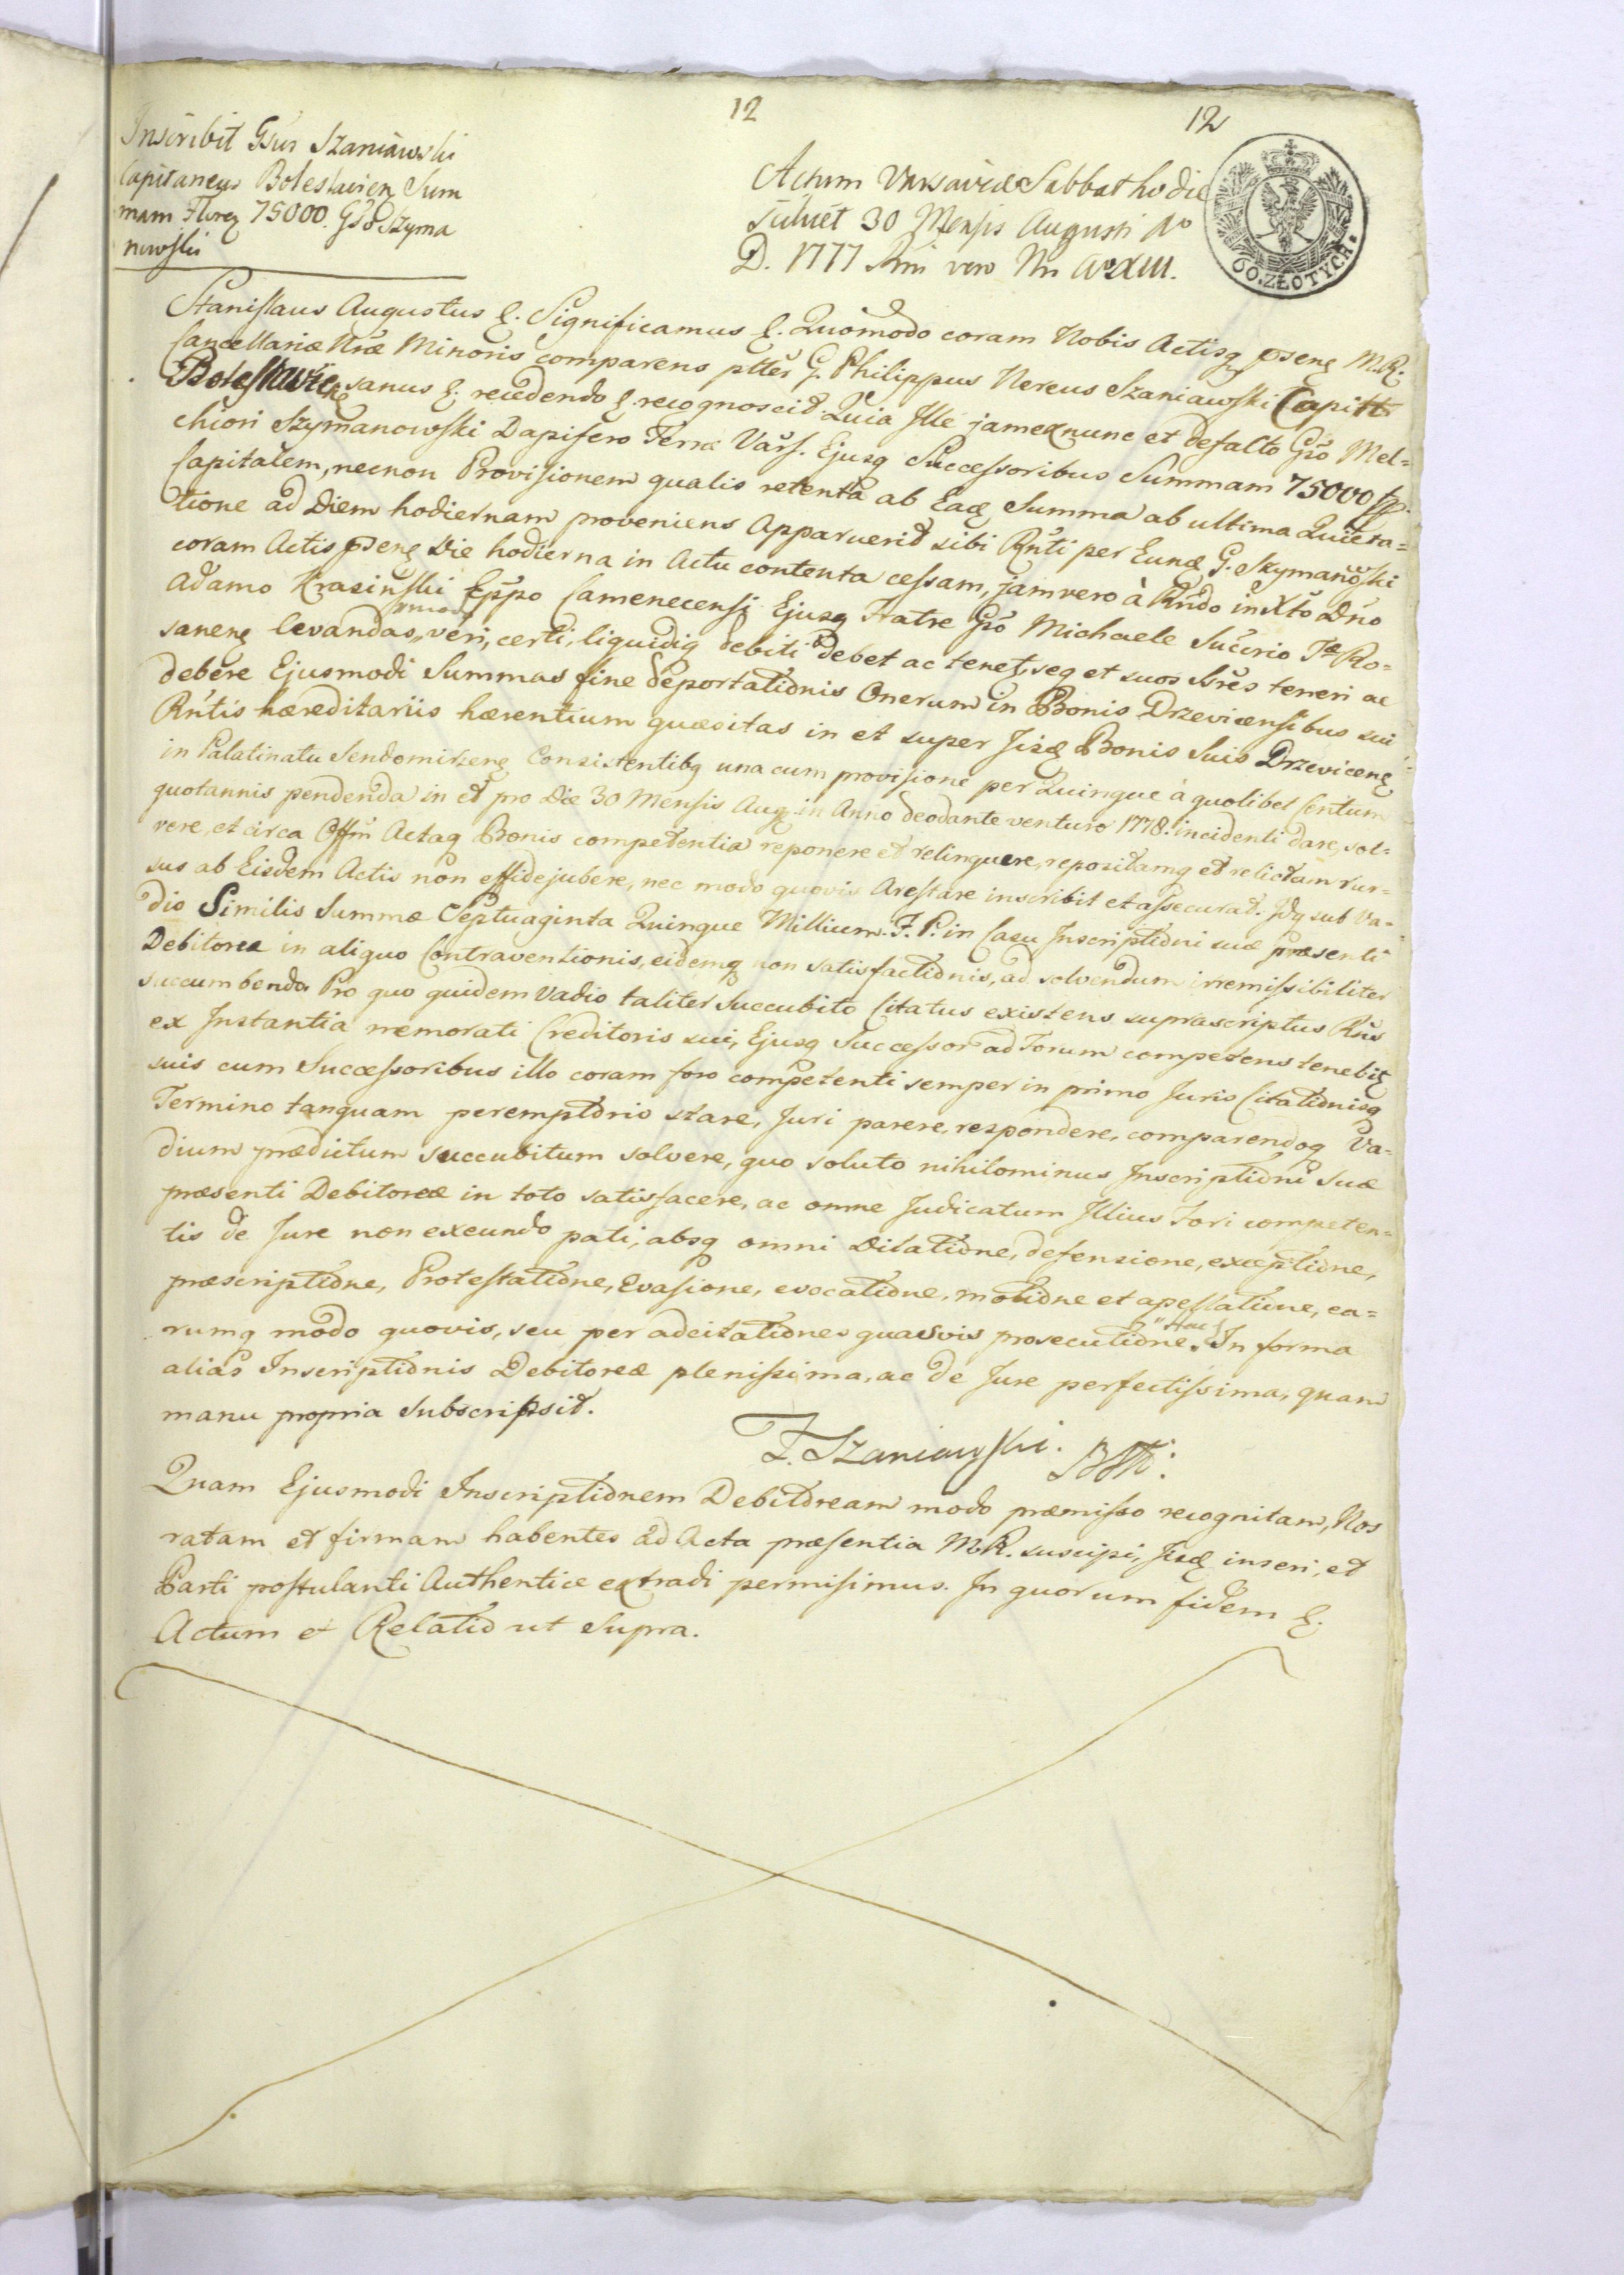 12
12
Inscribit Gsus Szaniawski
Capitaneus Boleslavien Sum
mam Floren 75000. Gso Szyma
nowski
Actum Varsaviæ Sabbatho die
30 Mensis Augusti Ao
D. 1777 Rni vero Nri Ao XIII.
60. ZŁOTYCH.
Stanislaus Augustus &. Significamus &. Quomodo coram Nobis Actisq psenq M.R.
Cancellariæ Nræ Minoris comparens ptter G. Philippus Nereus Szaniawski Capitt
Boleslavienq sanus &. recedendo &. recognoscit. Quia Ille jam ex nunc et defacto Gso Mel=
chiori Szymanowski Dapifero Terræ Vars. Ejusq Successoribus Summam 75000 fp.
Capitalem, necnon Provisionem qualis retenta ab Eaq Summa ab ultima Quieta=
tione ad Diem hodiernam proveniens Apparuerit sibi Rnti per Eunq G. Szymanowski
coram Actis psenq Die hodierna in Actu contenta cessam, jamvero à Rndo in Xto Dno
Adamo Krasinski Eppo Camenecensi Ejusq Fratre Gso Michaele Succ. Ta Ro=
sanenq levandas, veri, certi, liquidiq debiti debet ac tenet, seq et suos Sres teneri ac
debere Ejusmodi Summas fine deportationis Onerum in Bonis Drzevicensibus sui
Rntis hæreditariis hærentium quæsitas in et super Jisq Bonis Suis Drzevicenq
in Palatinatu Sendomirienq Consistentibq una cum provisione per Quinque à quolibet Centum
quotannis pendenda in et pro Die 30 Mensis Augq in Anno deodante venturo 1778. incidenti dare, sol=
vere, et circa Offm Actaq Bonis competentia reponere et relinquere, repositamq et relictam rur=
sus ab Eisdem Actis non effidejubere, nec modo quovis Arestare inscribit et assecurat. Idq sub Va=
dio Similis Summæ Septuaginta Quinque Millium F. P. in Casu Inscriptioni suæ præsenti
Debitoreæ in aliquo Contraventionis, eidemq non satisfactionis, ad solvendum irremissibiliter
succumbenda Pro quo quidem Vadio taliter Succubito Citatus existens suprascriptus Rns
ex Instantia memorati Creditoris sui, Ejusq Successor ad Forum competens tenebitq
suis cum Successoribus illo coram foro competenti semper in primo Juris Citationisq
Termino tanquam peremptorio stare, Juri parere, respondere, comparendoq Va=
dium prædictum succubitum solvere, quo soluto nihilominus Inscriptioni Suæ
præsenti Debitoreæ in toto satisfacere, ac omne Judicatum Illius Fori competen=
tis de Jure non exeundo pati, absq omni Dilatione, defensione, exceptione,
præscriptione, Protestatione, Evasione, evocatione, motione et apellatione, ea=
rumq modo quovis, seu per adcitationes quasvis prosecutione. Hac In forma
alias Inscriptionis Debitoreæ plenissima, ac de Jure perfectissima, quam
manu propria Subscripsit.
F. Szaniawski.
Quam Ejusmodi Inscriptionem Debitoream modo præmisso recognitam, Nos
ratam et firmam habentes ad Acta præsentia M.R. suscipi, Jisq inseri, et
Parti postulanti Authentice extradi permisimus. In quorum fidem &.
Actum et Relatio ut Supra.